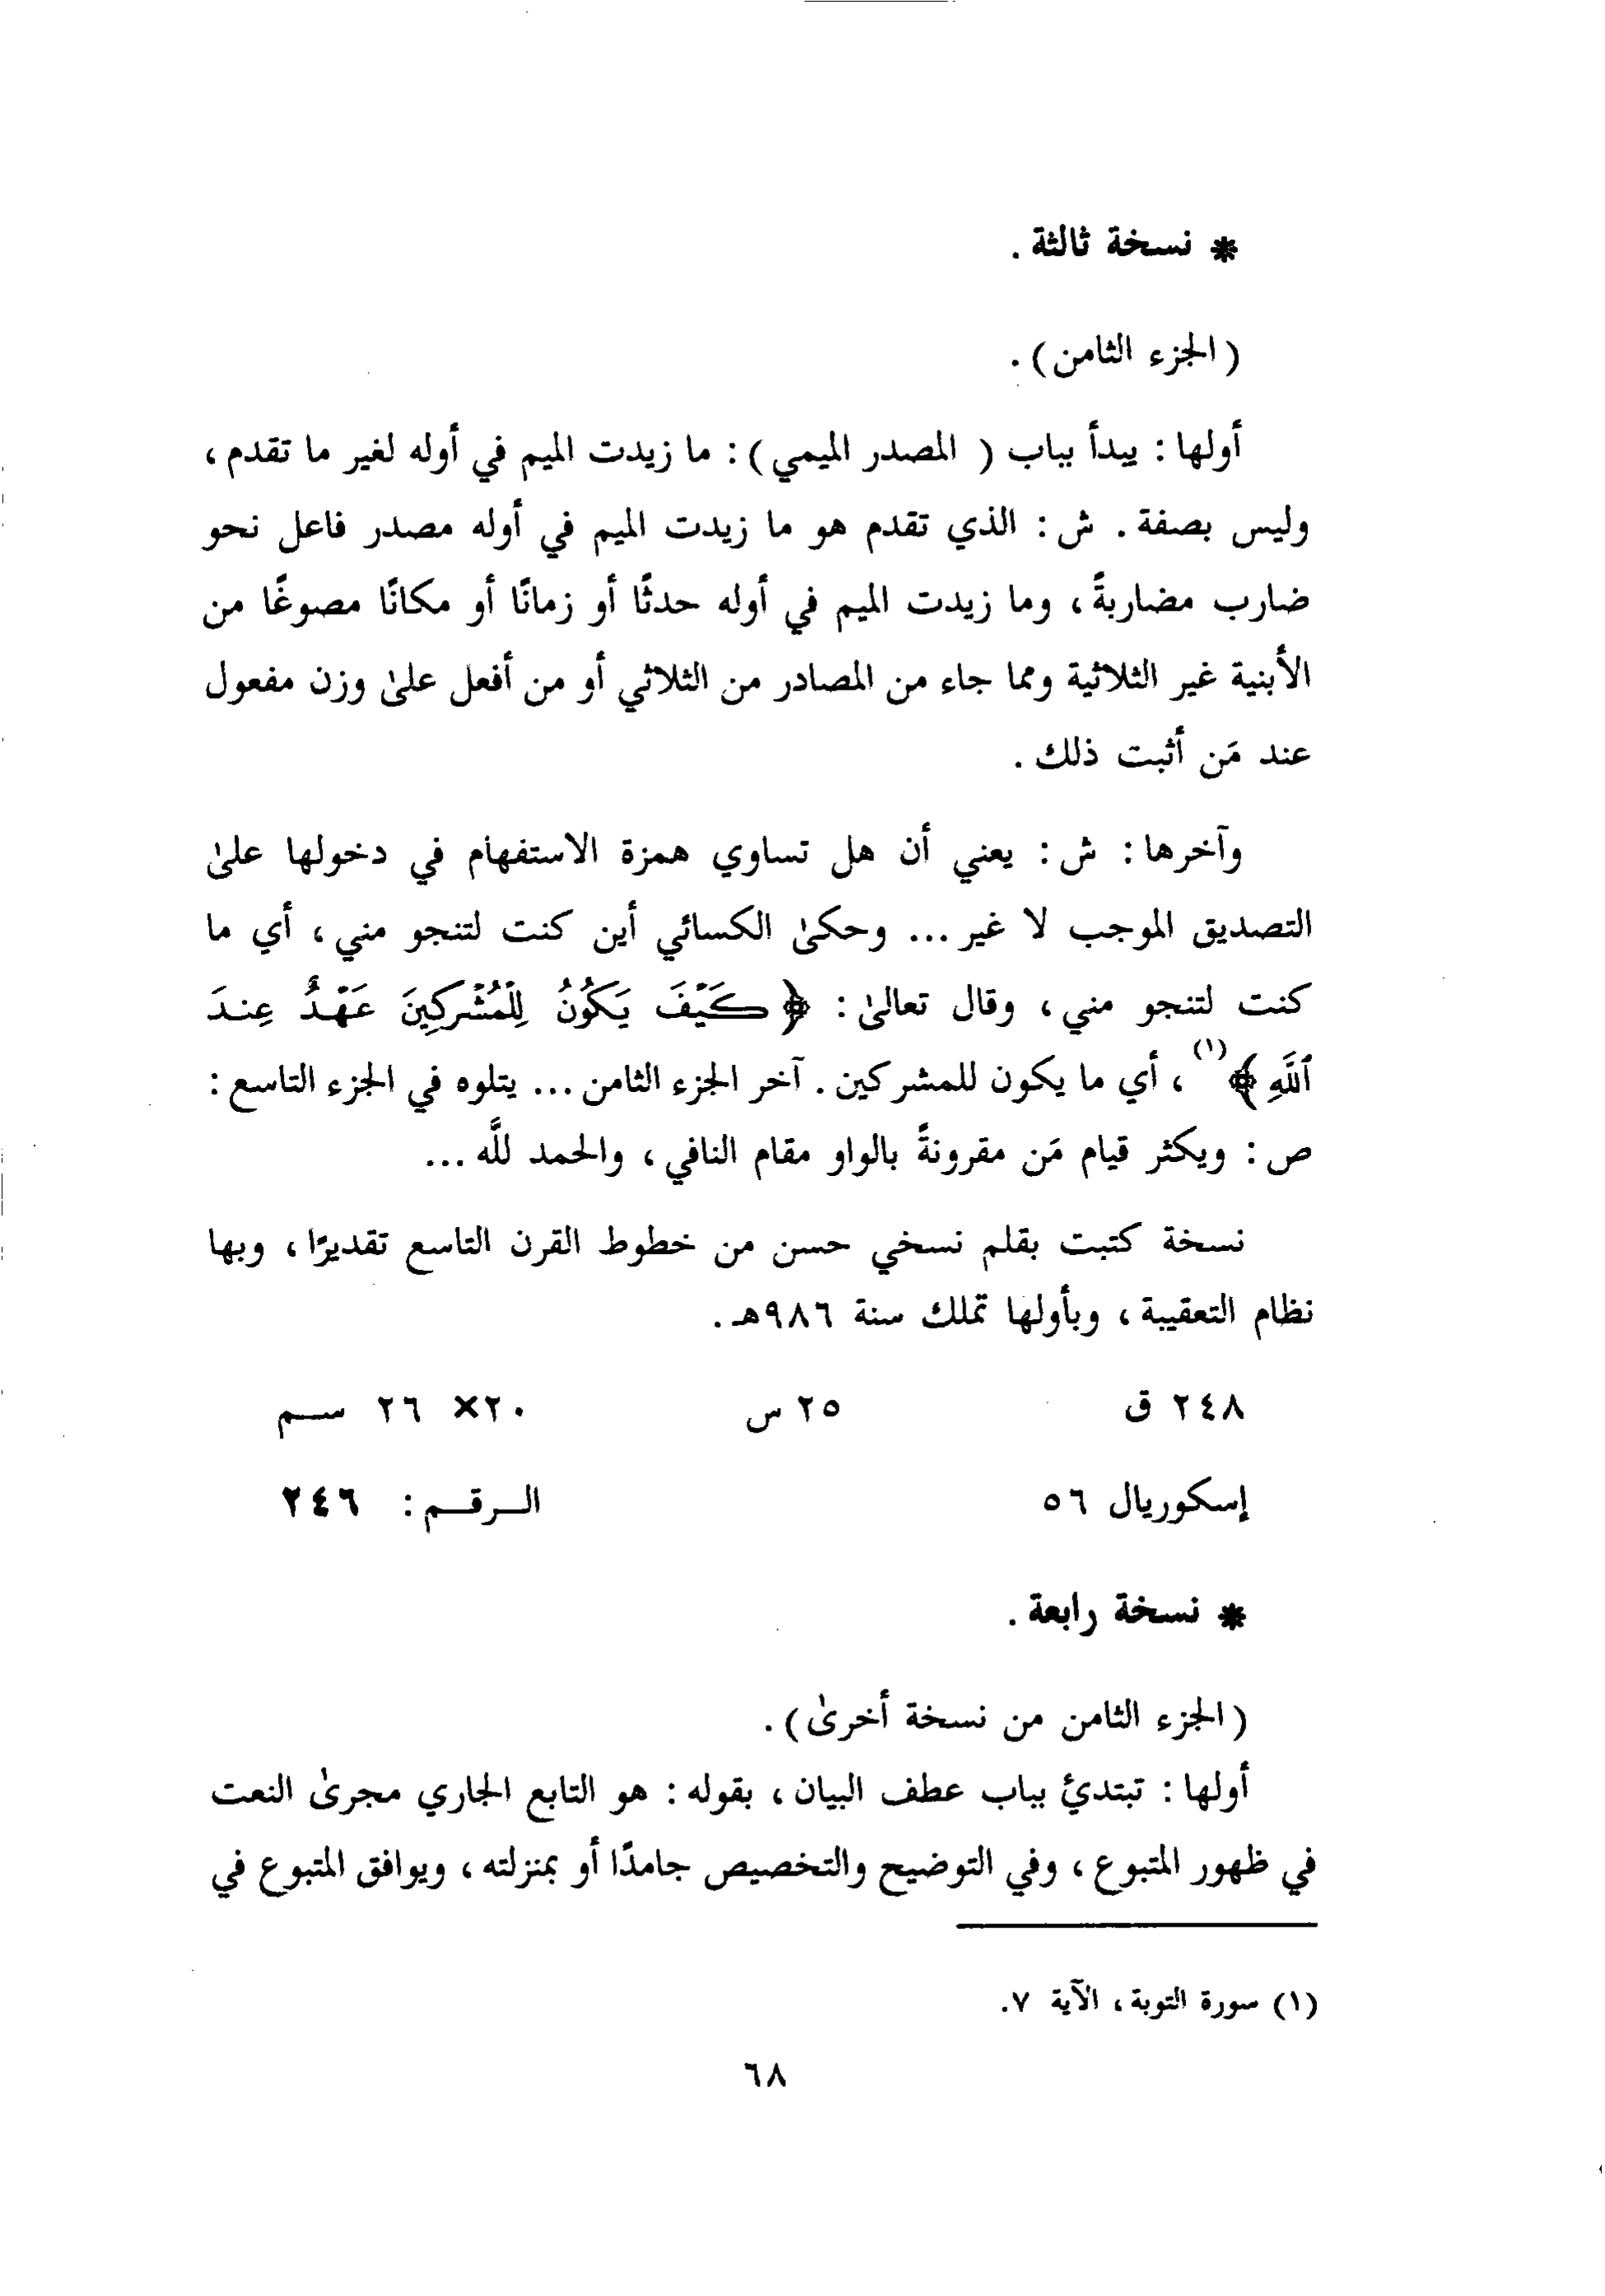 * نسخة ثالثة .
( الجزء الثامن ) .
أولها : يبدأ بباب ( المصدر الميمي ) : ما زيدت الميم في أوله لغير ما تقدم ،
وليس بصفة . ش : الذي تقدم هو ما زيدت الميم في أوله مصدر فاعل نحو
ضارب مضاربةً ، وما زيدت الميم في أوله حدثًا أو زمانًا أو مكانًا مصوغًا من
الأبنية غير الثلاثية ومما جاء من المصادر من الثلاثي أو من أفعل علىٰ وزن مفعول
عند مَن أثبت ذلك .
وآخرها : ش : يعني أن هل تساوي همزة الاستفهام في دخولها علىٰ
التصديق الموجب لا غير ... وحكىٰ الكسائي أين كنت لتنجو مني ، أي ما
كنت لتنجو مني ، وقال تعالىٰ : ﴿ كَيْفَ يَكُونُ لِلْمُشْرِكِينَ عَهْدٌ عِندَ
ٱللَّهِ ﴾ (١) ، أي ما يكون للمشركين . آخر الجزء الثامن ... يتلوه في الجزء التاسع :
ص : ويكثر قيام مَن مقرونةً بالواو مقام النافي ، والحمد للَّه ...
نسخة كتبت بقلم نسخي حسن من خطوط القرن التاسع تقديرًا ، وبها
نظام التعقيبة ، وبأولها تملك سنة ٩٨٦هـ .
٢٤٨ ق ٢٥ س ٢٠× ٢٦ سـم
إسكوريال ٥٦ الـرقـم : ٢٤٦
* نسخة رابعة .
( الجزء الثامن من نسخة أخرىٰ ) .
أولها : تبتدئ بباب عطف البيان ، بقوله : هو التابع الجاري مجرىٰ النعت
في ظهور المتبوع ، وفي التوضيح والتخصيص جامدًا أو بمنزلته ، ويوافق المتبوع في
(١) سورة التوبة ، الآية ٧.
٦٨